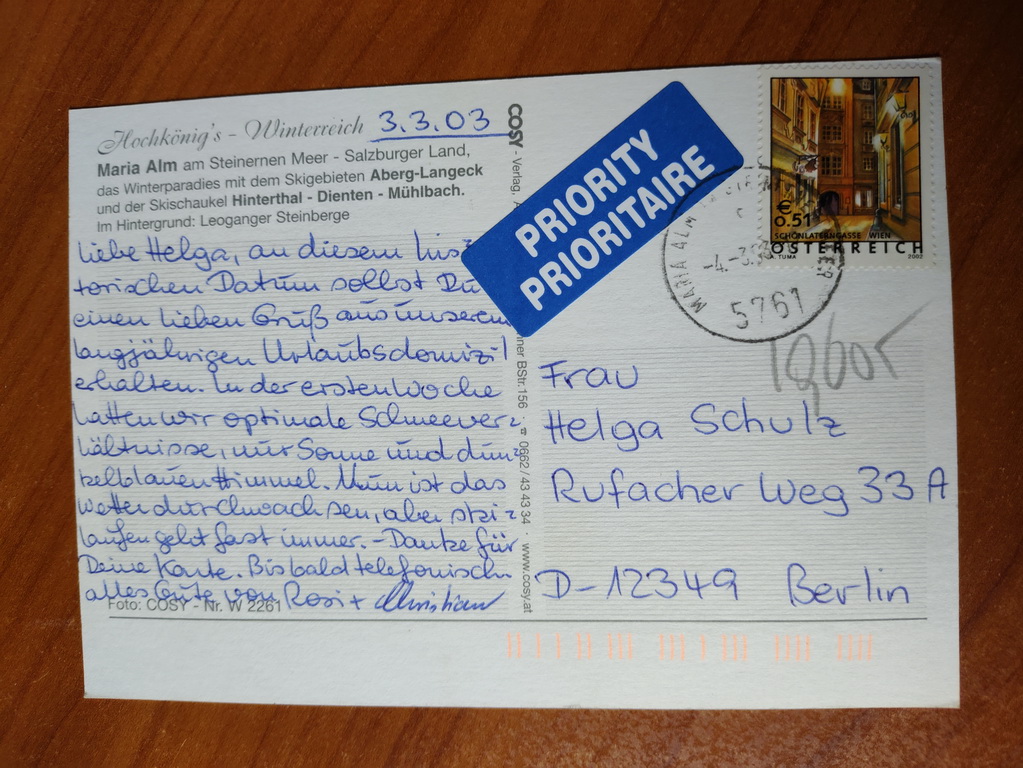 Hochkönig's - Winterreich 3.3.03
Maria Alm am Steinernen Meer - Salzburger Land,
das Winterparadies mit dem Skigebieten Aberg-Langeck
und der Skischaukel Hinterthal - Dienten - Mühlbach.
Im Hintergrund: Leoganger Steinberge
Liebe Helga, an diesem his
torischen Datum sollst Du
einen lieben Gruß aus unserem
langjährigen Urlaubsdomizil
erhalten. In der ersten Woche
hatten wir optimale Schneever=
hältnisse, nur Sonne und dun=
kelblauen Himmel. Nun ist das
Wetter durchwachsen, aber ski=
laufen geht fast immer. - Danke für
Deine Karte. Bis bald telefonisch
alles Gute von Rosi + Christian
Foto: COSY - Nr. W 2261
COSY - Verlag,
ner BStr.156 · ☎ 0662/43 43 34 · www.cosy.at
PRIORITY
PRIORITAIRE
MARIA ALM
-4.-3.
5761
€
0.51
SCHÖNLATERNGASSE WIEN
ÖSTERREICH
A. TUMA 2002
Frau
Helga Schulz
Rufacher Weg 33 A
D-12349 Berlin